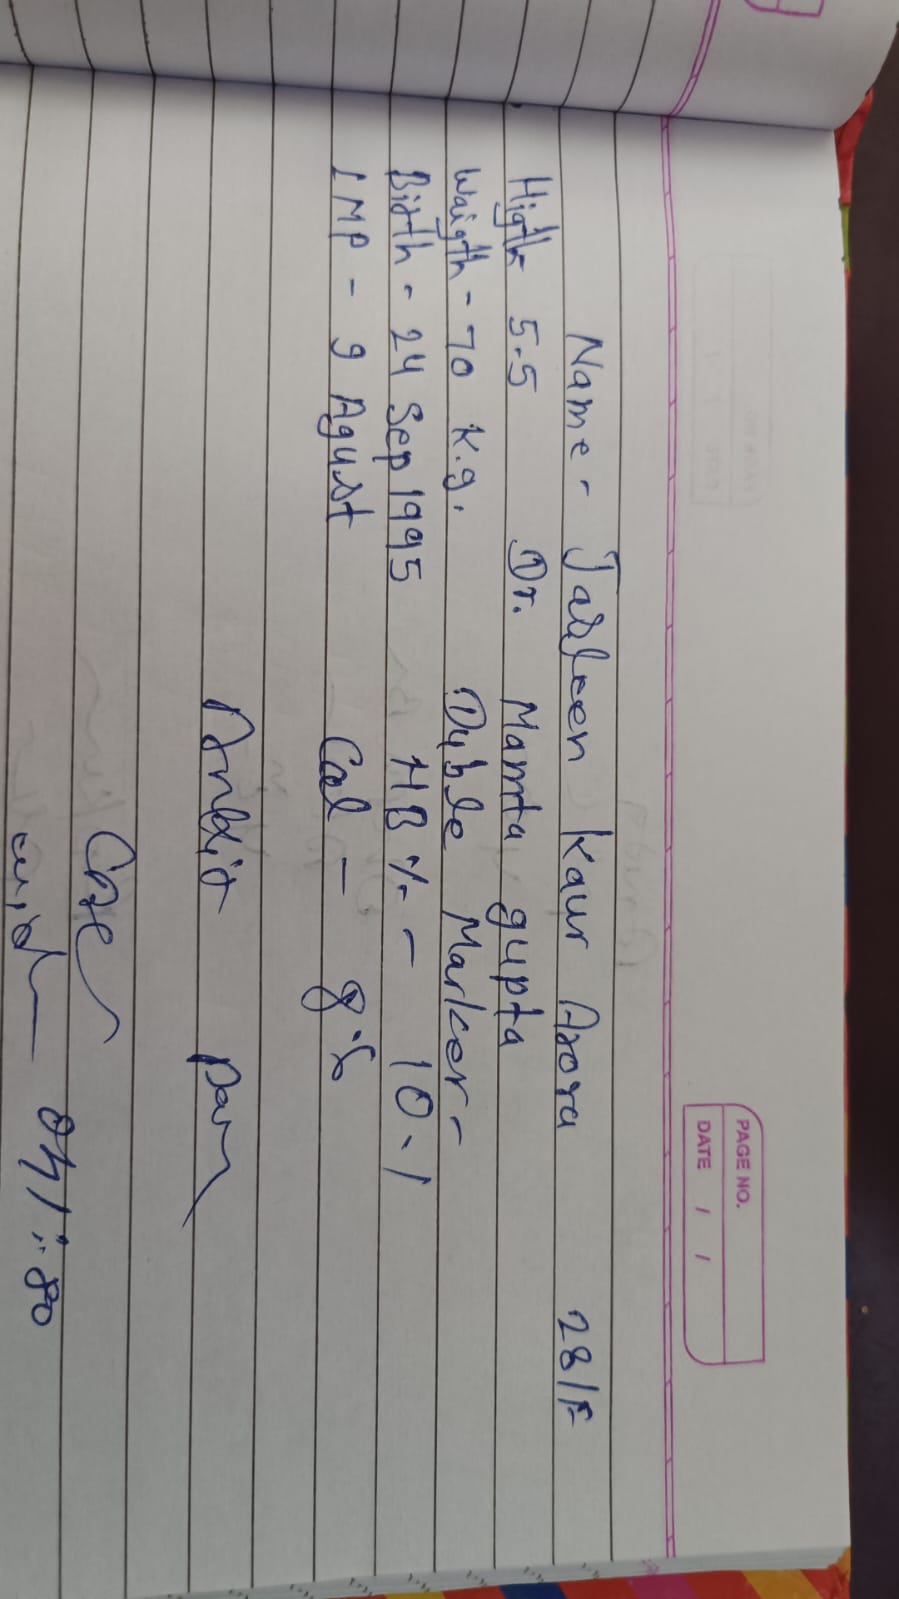 PAGE NO.
DATE / /
Name - Jasleen Kaur Arora 28/F
Higth 5.5 Dr. Mamta gupta
Waigth - 70 K.g. Duble Marker -
Birth - 24 Sep 1995 HB% - 10.1
LMP - 9 Agust Cal - 8.6